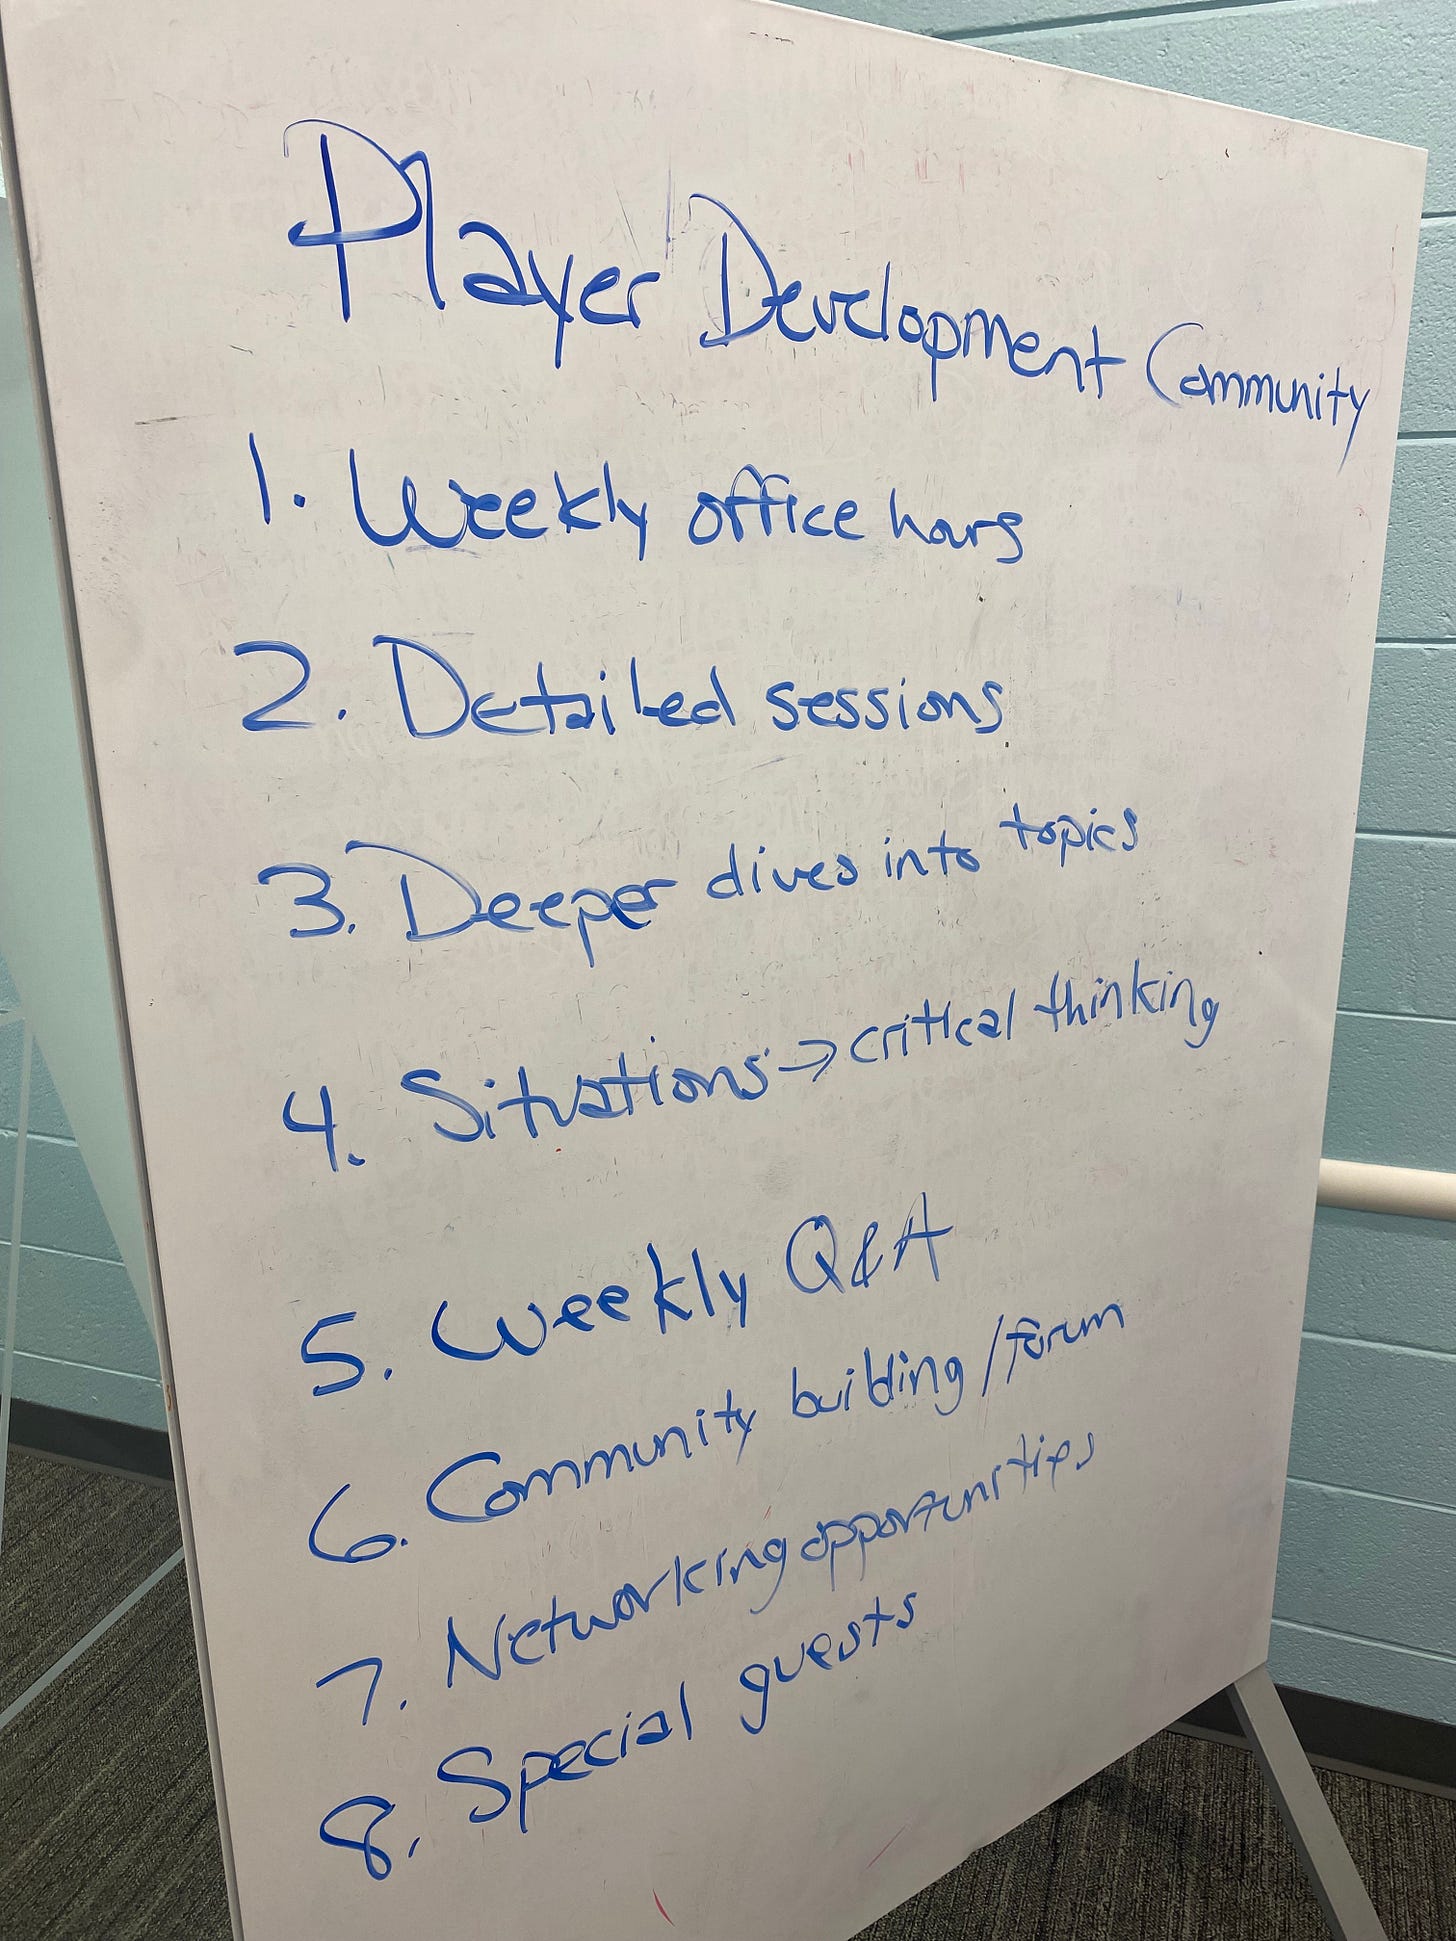 Player Development Community
1. Weekly office hours
2. Detailed sessions
3. Deeper dives into topics
4. Situations → critical thinking
5. Weekly Q&A
6. Community building / forum
7. Networking opportunities
8. Special guests